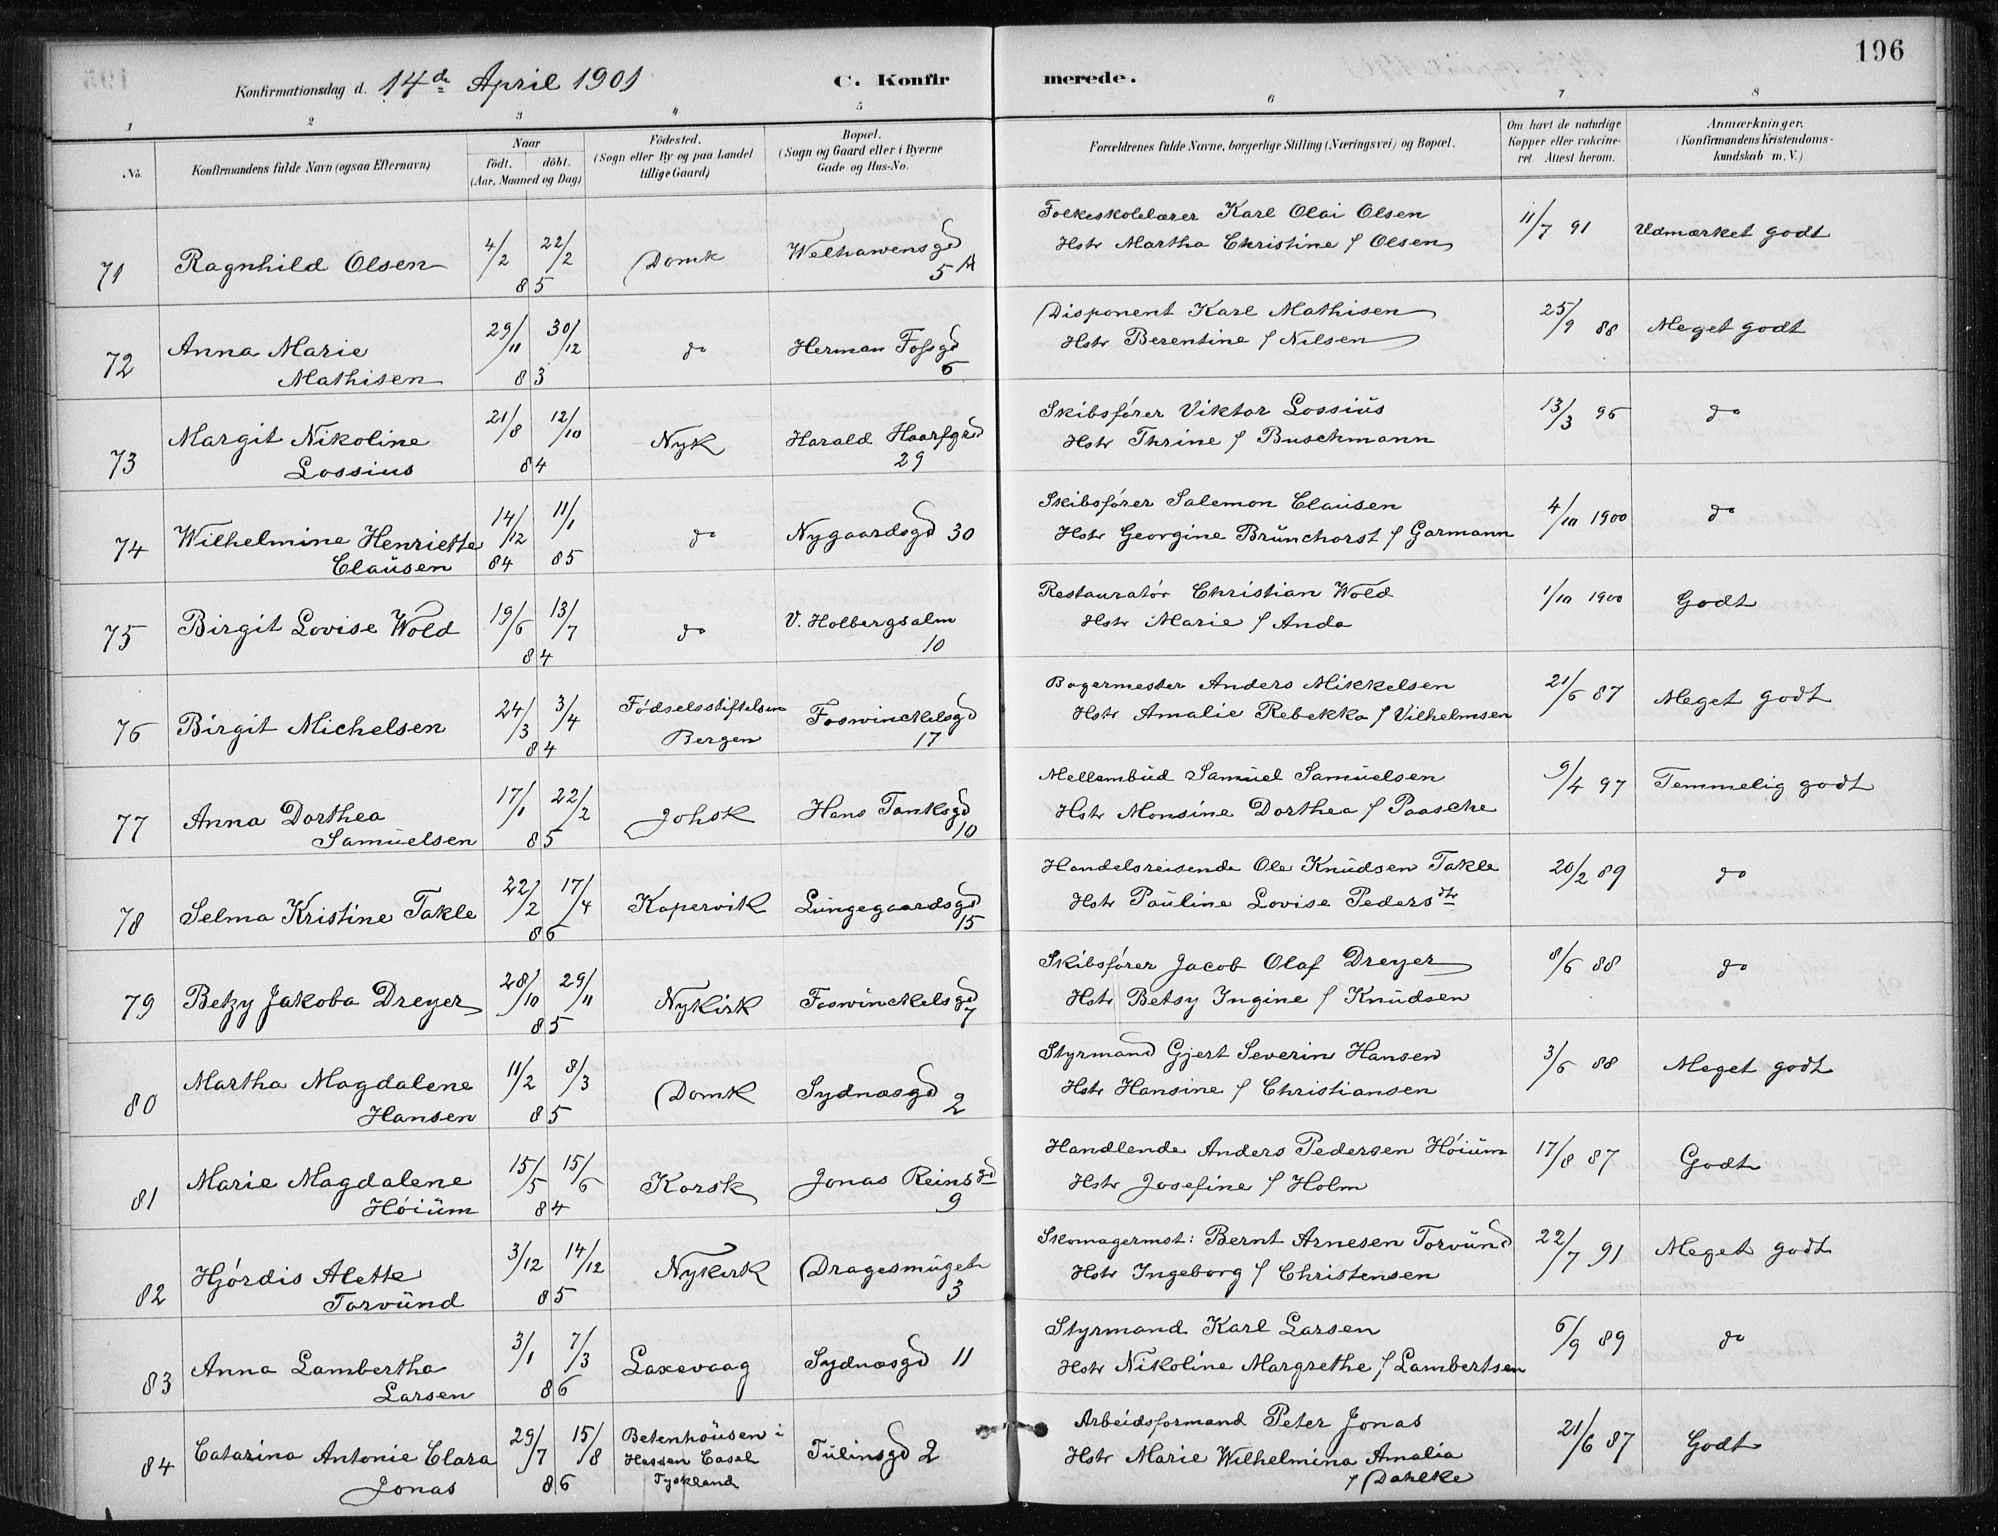 196
Konfirmationsdag d. 14de April 1901 C. Konfirmerede.
1 2 3 4 5 6 7 8
No. Konfirmandens fulde Navn (ogsaa Efternavn) Naar födt. döbt. (Aar, Maaned og Dag) Födested. (Sogn eller By og paa Landet tillige Gaard) Bopæl. (Sogn og Gaard eller i Byerne Gade og Hus-No. Forældrenes fulde Navne, borgerlige Stilling (Næringsvei) og Bopæl. Om havt de naturlige Kopper eller vakcineret. Attest herom. Anmærkninger. (Konfirmandens Kristendomskundskab m. V.)
71 Ragnhild Olsen 4/2 22/2 85 Domk Welhavensgd 5 A Folkeskolelærer Karl Olai Olsen 11/7 91 Udmærket godt
Hstr Martha Christine f Olsen
72 Anna Marie 29/11 30/12 do Herman Fossgd Disponent Karl Mathisen 25/9 88 Meget godt
Mathisen 83 6 Hstr Berentine f Nilsen
73 Margit Nikoline 21/8 12/10 Nyk Harald Haarfgrd Skibsfører Viktor Lossius 13/3 96 do
Lossius 84 29 Hstr Thrine f Buschmann
74 Wilhelmine Henriette 14/12 11/1 do Nygaardsgd 30 Skibsfører Salemon Clausen 4/10 1900 do
Clausen 84 85 Hstr Georgine Brunchorst f Garmann
75 Birgit Lovise Wold 19/6 13/7 do V. Holbergsalm Restauratør Christian Wold 1/10 1900 Godt
84 10 Hstr Marie f Anda
76 Birgit Michelsen 24/3 3/4 Fødselsstiftelsen Foswinckelsgd Bagermester Anders Mikkelsen 21/6 87 Meget godt
84 Bergen 17 Hstr Amalie Rebekka f Vilhelmsen
77 Anna Dorthea 17/1 22/2 Johsk Hans Tanksgd Mellembud Samuel Samuelsen 9/4 97 Temmelig godt
Samuelsen 85 10 Hstr Monsine Dorthea f Paasche
78 Selma Kristine Takle 22/2 17/4 Kopervik Lungegaardsgd Handelsreisende Ole Knudsen Takle 20/2 89 do
86 15 Hstr Pauline Lovise Pedersdtr
79 Betzy Jakoba Dreyer 28/10 29/11 Nykirk Foswinckelsgd Skibsfører Jacob Olaf Dreyer 8/6 88 do
85 7 Hstr Betsy Ingine f Knudsen
80 Martha Magdalene 11/2 8/3 Domk Sydnæsgd Styrmand Gjert Severin Hansen 3/6 88 Meget godt
Hansen 85 2 Hstr Hansine f Christiansen
81 Marie Magdalene 15/5 15/6 Korsk Jonas Reinsgd Handlende Anders Pedersen Høium 17/8 87 Godt
Høium 84 9 Hstr Josefine f Holm
82 Hjørdis Alette 3/12 14/12 Nykirk Dragesmuget Skomagermst: Bernt Arnesen Torvund 22/7 91 Meget godt
Torvund 85 3 Hstr Ingeborg f Christensen
83 Anna Lambertha 3/1 7/3 Laxevaag Sydnæsgd 11 Styrmand Karl Larsen 6/9 89 do
Larsen 86 Hstr Nikoline Margrethe f Lambertsen
84 Catarina Antonie Clara 29/7 15/8 Betenhausen i Tulinsgd 2 Arbeidsformand Peter Jonas 21/6 87 Godt
Jonas 86 Hessen Casel Hstr Marie Wilhelmina Amalia
Tyskland f Dahlke